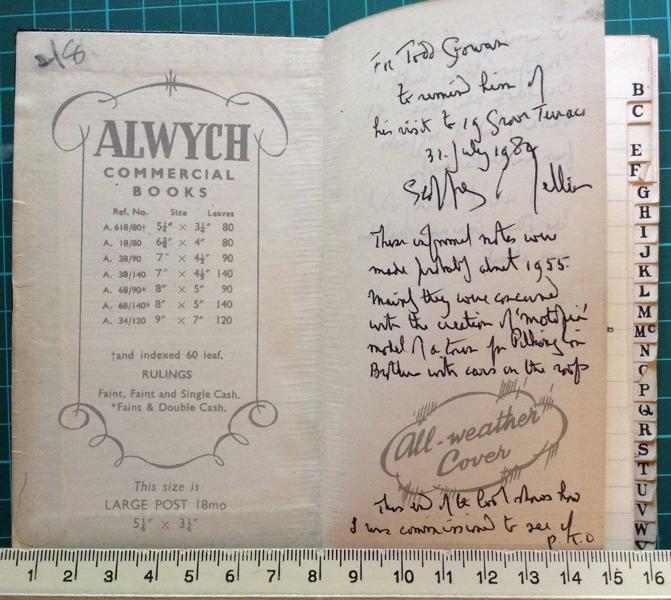 2/8
ALWYCH
COMMERCIAL
BOOKS
Ref. No. Size Leaves
A. 618/80† 5¼" × 3¼" 80
A. 18/80 6⅜" × 4" 80
A. 38/90 7" × 4½" 90
A. 38/140 7" × 4½" 140
A. 68/90* 8" × 5" 90
A. 68/140* 8" × 5" 140
A. 34/120 9" × 7" 120
†and indexed 60 leaf.
RULINGS
Faint, Faint and Single Cash.
*Faint & Double Cash.
This size is
LARGE POST 18mo
5¼" × 3¼"
For Todd
to remind him of
his visit to 19 Grove Terrace
31. July 1989
Geoffrey Jellicoe
These informal notes were
made probably about 1955.
Mainly they were concerned
with the creation of 'motopia'
model of a town for Pilkington
Brothers with cars on the roofs
All-weather
Cover
This end of the book shows how
I was commissioned to see
P.T.O
B
C
E
F
G
H
I
J
K
L
M
Mc
N
O
P
Q
R
S
T
U
V
W
1 2 3 4 5 6 7 8 9 10 11 12 13 14 15 16